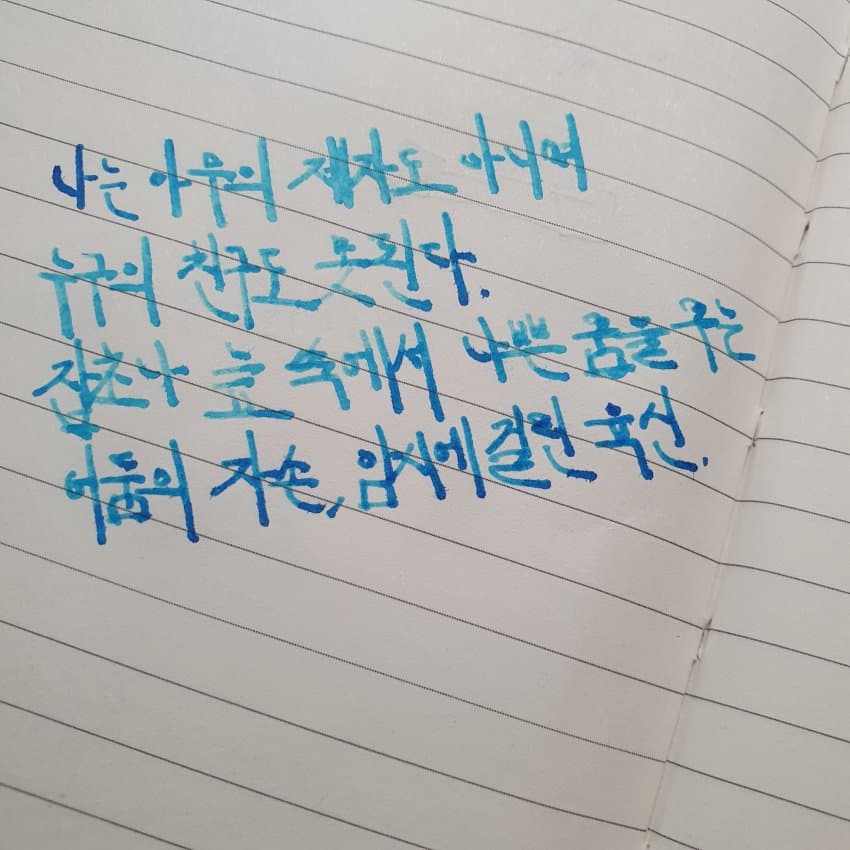 나는 아무의 제자도 아니며
누구의 친구도 못된다.
잡초나 늪 속에서 나쁜 꿈을 꾸는
어둠의 자손, 암시에 걸린 육신.